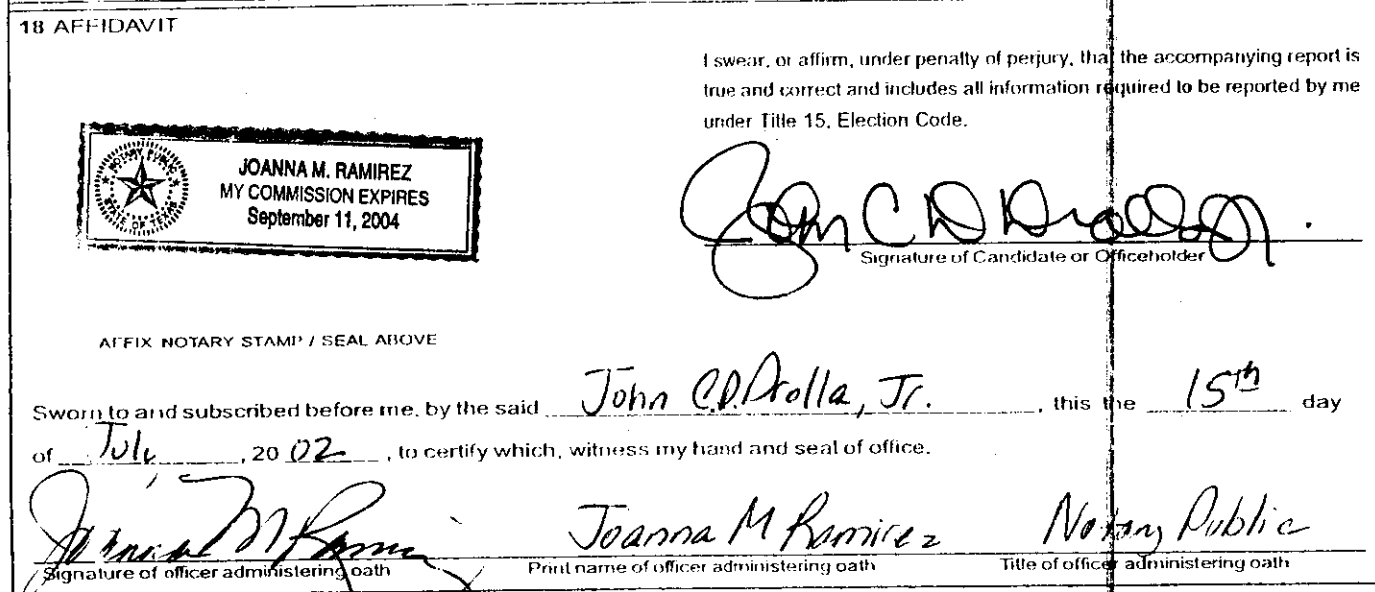 18 AFFIDAVIT
I swear, or affirm, under penalty of perjury, that the accompanying report is
true and correct and includes all information required to be reported by me
under Title 15, Election Code.
NOTARY PUBLIC
STATE OF TEXAS
JOANNA M. RAMIREZ
MY COMMISSION EXPIRES
September 11, 2004
John C D Drolla Jr.
Signature of Candidate or Officeholder
AFFIX NOTARY STAMP / SEAL ABOVE
Sworn to and subscribed before me, by the said John C.D. Drolla, Jr. , this the 15th day
of July , 20 02 , to certify which, witness my hand and seal of office.
Joanna M Ramirez Joanna M Ramirez Notary Public
Signature of officer administering oath Print name of officer administering oath Title of officer administering oath